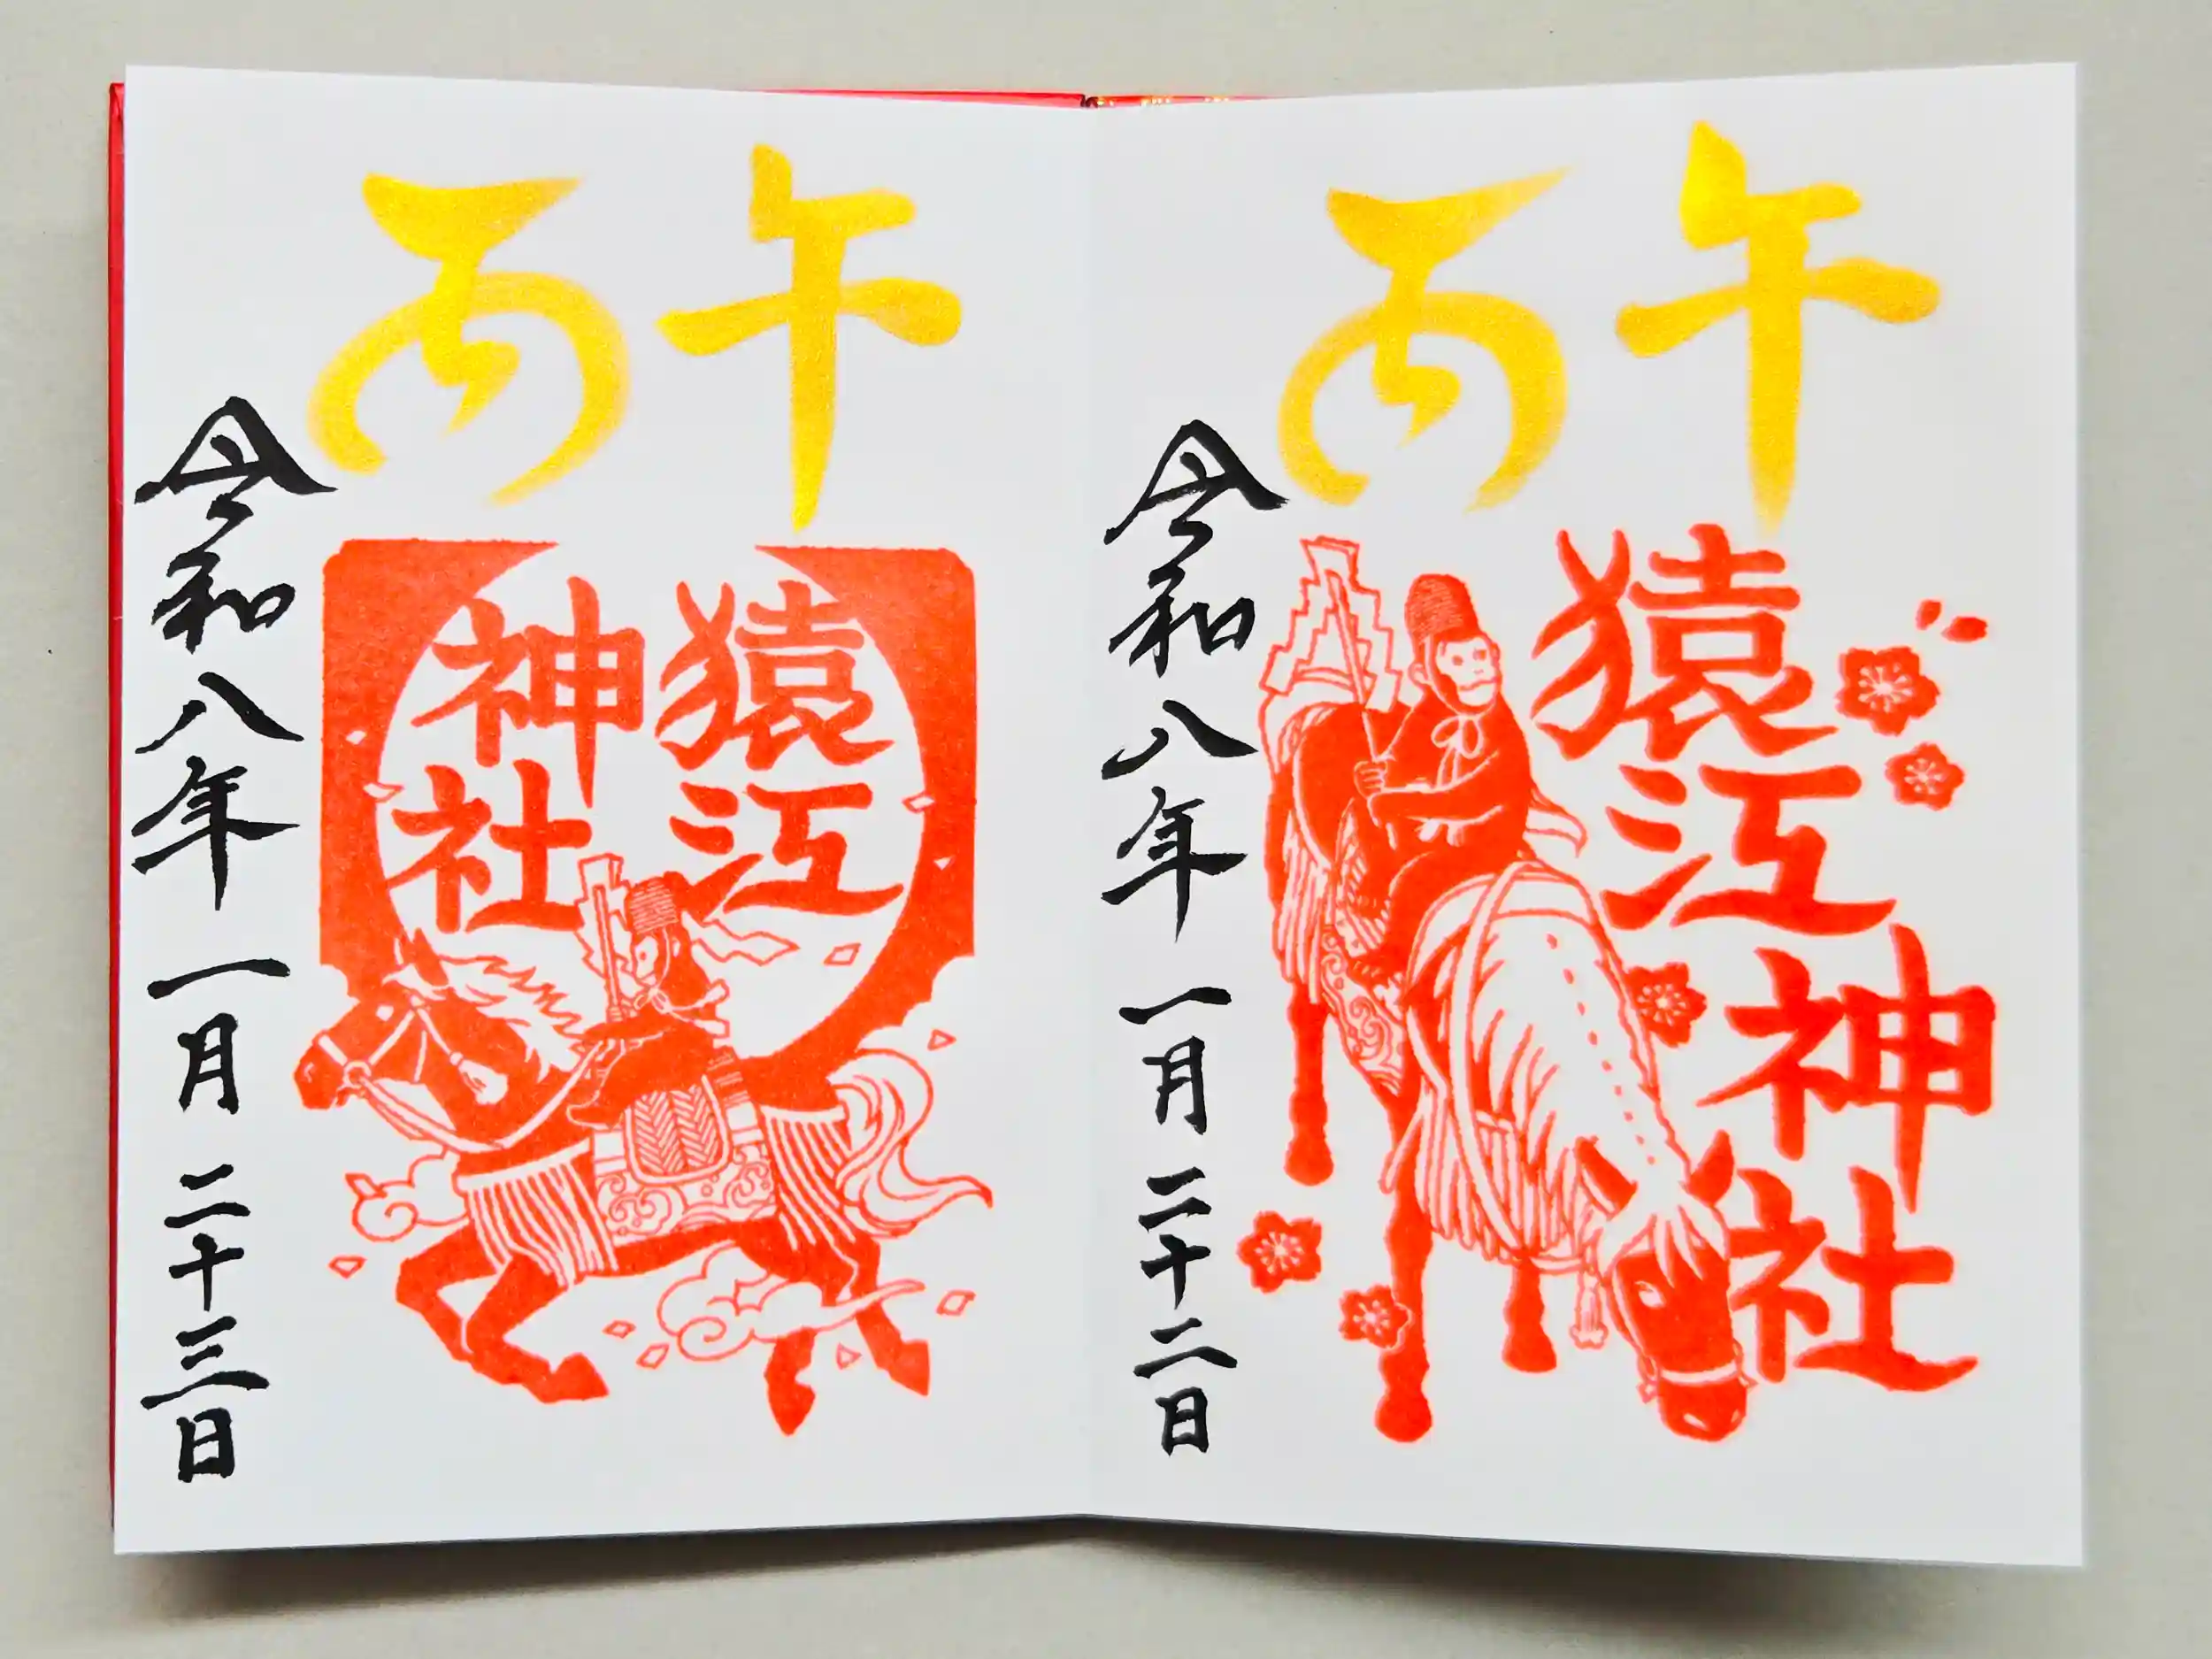 午丙
猿江神社
令和八年一月二十二日
午丙
猿江
神社
令和八年一月二十三日